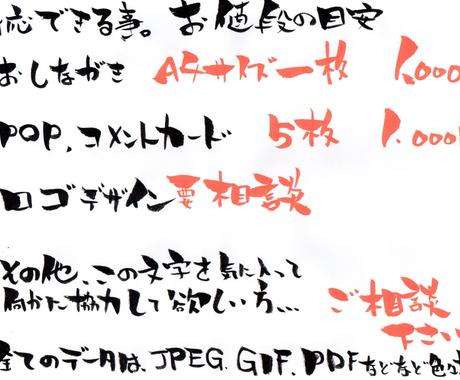 応できる事。 お値段の目安
おしながき A4サイズ一枚 1,000
POP、コメントカード 5枚 1,000
ロゴデザイン要相談
その他、この文字を気に入って
何かに協力して欲しい方... ご相談
下さい
全てのデータは、JPEG. GIF. PDFなどなど色々